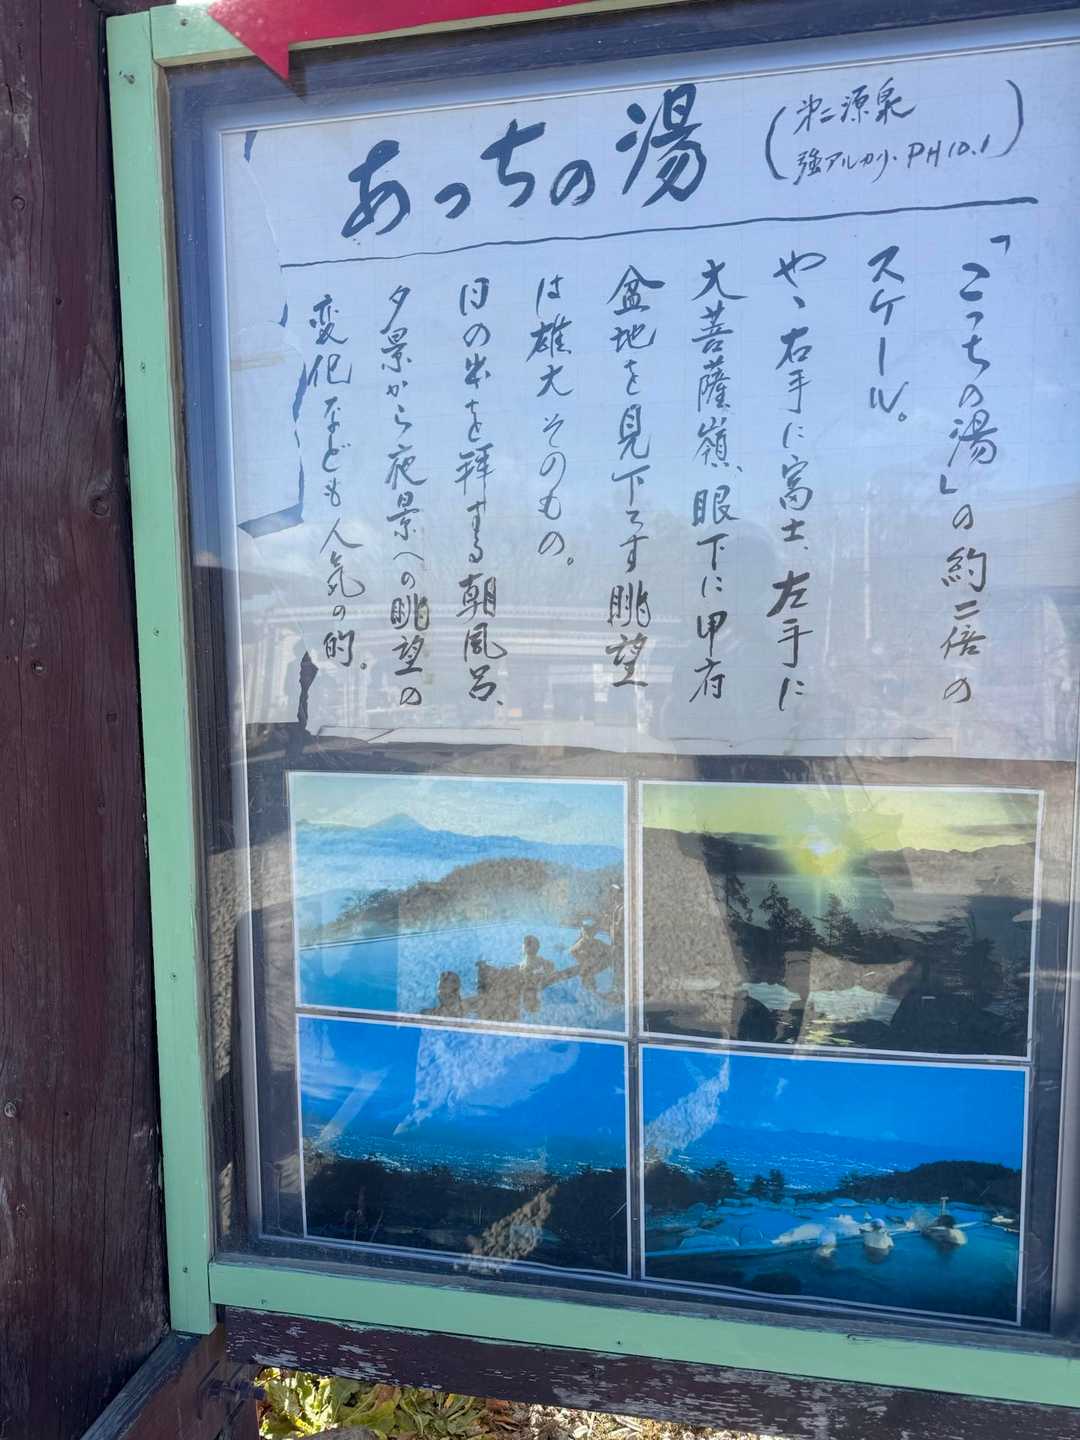 あっちの湯
(第二源泉
強アルカリ・PH10.1)
「こっちの湯」の約二倍の
スケール。
やゝ右手に富士、左手に
大菩薩嶺、眼下に甲府
盆地を見下ろす眺望
は雄大そのもの。
日の出を拝する朝風呂、
夕景から夜景への眺望の
変化なども人気の的。